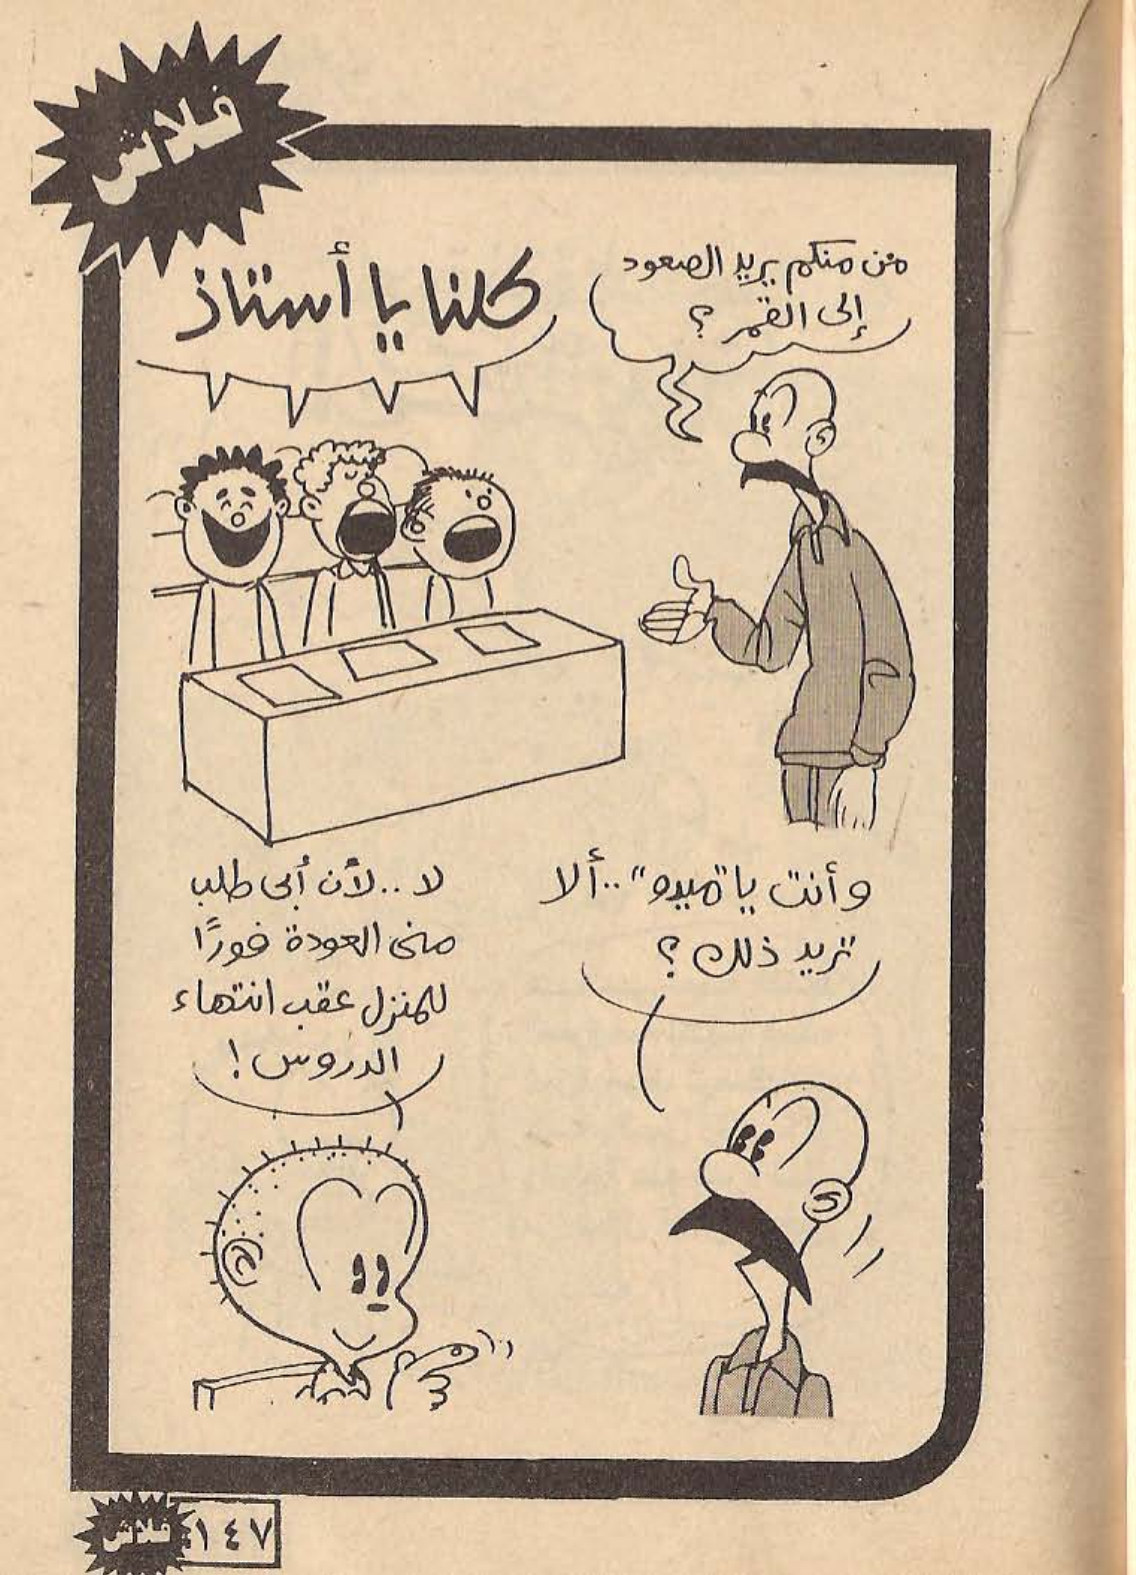 فلاش
من منكم يريد الصعود
إلى القمر؟
كلنا يا أستاذ
وأنت يا "ميدو"..ألا
تريد ذلك؟
لا..لأن أبى طلب
منى العودة فورًا
للمنزل عقب انتهاء
الدروس!
فلاش
١٤٧